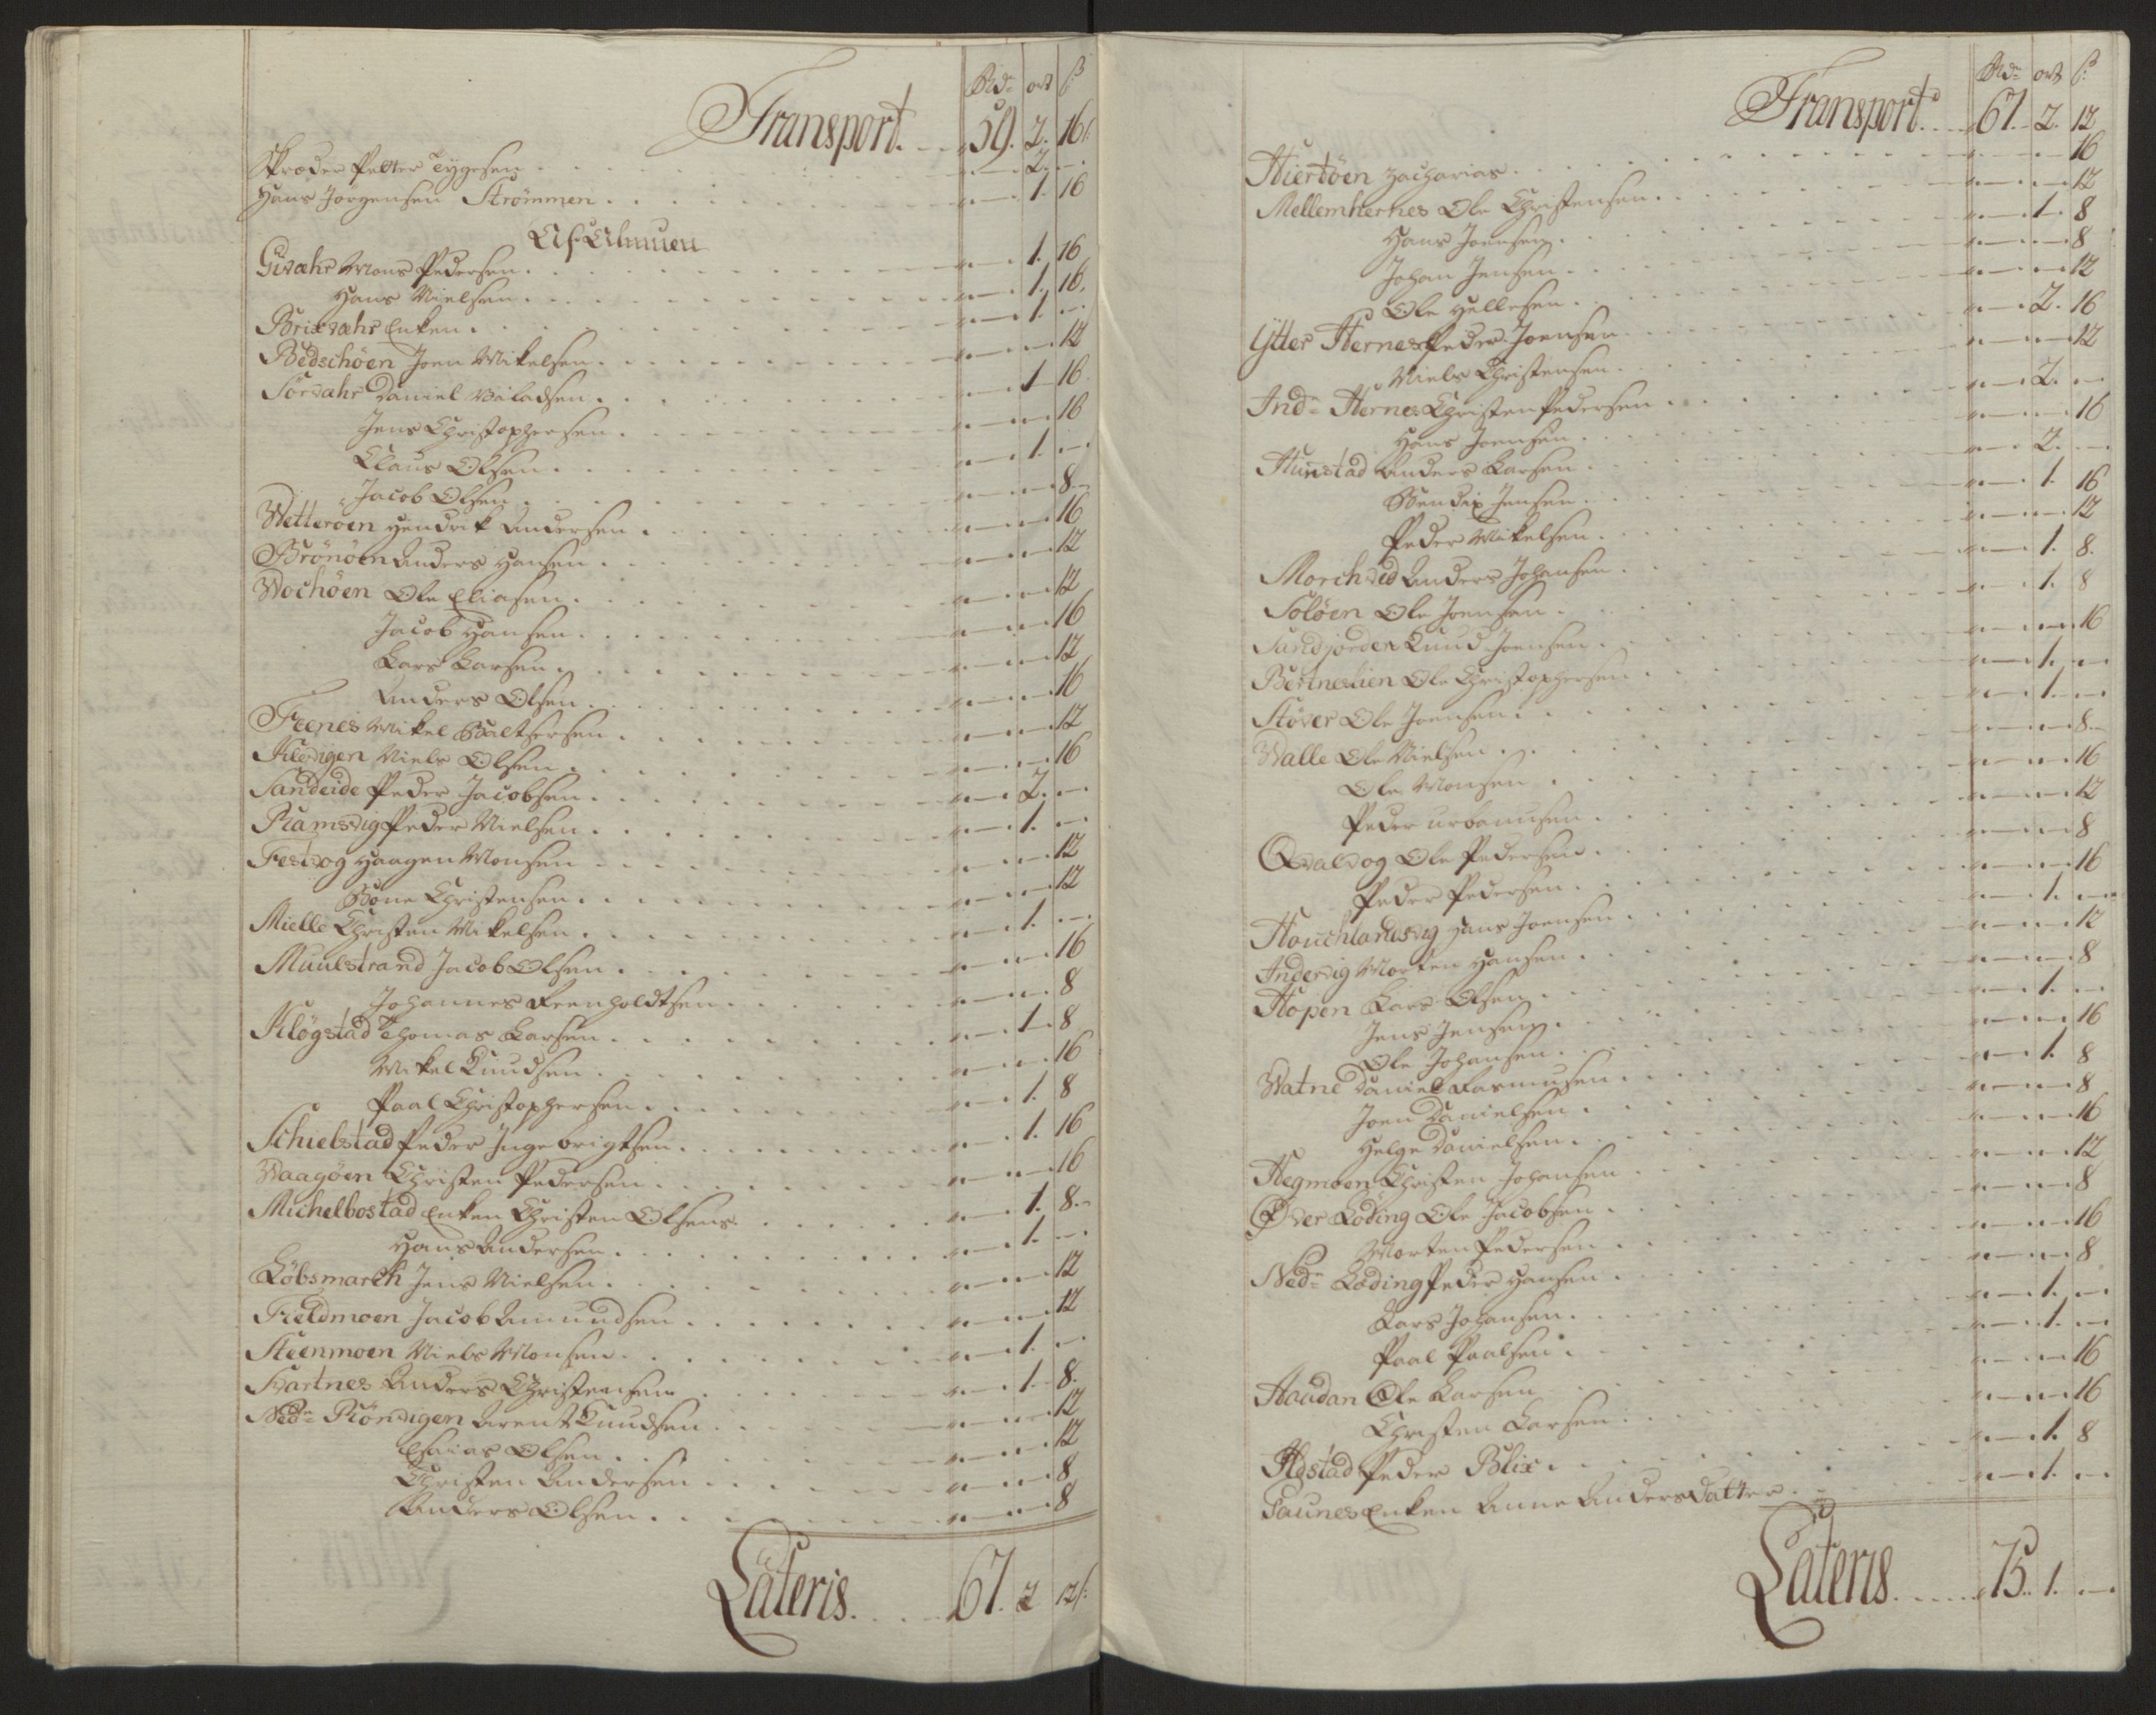 Rdr ort ß
Transport. 59. 2. 16
Skræder Petter Tygesen . . . 2. —
Hans Jörgensen Strömmen . . . 1. 16
Af Almuen
Givæhr Mons Pedersen . . . 1. 16
Hans Nielsen . . . 1. 16.
Brixvæhr Enken . . . 1. —
Bedschöen Joen Mikelsen . . . 12
Sörvæhr Daniel . . . 1 16
Jens Christophersen . . . 16
Claus Olsen . . . 1. —
Jacob Olsen . . . 8
Wetteröen Hendrik Andersen . . . 16
Brönöen Anders Hansen . . . 12
Wochöen Ole Eliasen . . . 12
Jacob Hansen . . . 16
Lars Larsen . . . 12
Anders Olsen . . . 16
Feenes Mikel Baltzersen . . . 12
Niels Olsen . . . 16
Sandeide Peder Jacobsen . . . 2. —
Ramsvig Peder Nielsen . . . 1. —
Festvog Haagen Monsen . . . 12
Bone Christensen . . . 12
Mielle Christen Mikelsen . . . 1. —
Muulstrand Jacob Olsen . . . 16
Johannes Reenholdtsen . . . 8
Klögstad Thomas Larsen . . . 1 8
Mikel Knudsen . . . 16
Paal Christophersen . . . 1. 8
Schielstad Peder Ingebrigtsen . . . 1. 16
Waagöen Christen Pedersen . . . 16
Michelbostad Enken Christen Olsens . . . 1. 8
Hans Andersen . . . 1. —
Löbsmarch Jens Nielsen . . . 12
Fieldmoen Jacob Amundsen . . . 12
Steenmoen Niels Monsen . . . 1. —
Svartnes Anders Christensen . . . 1 8.
Nedr Röndvigen Arent Knudsen . . . 12
Esaias Olsen . . . 12
Christen Andersen . . . 8
Anders Olsen . . . 8
Lateris. . . . 67. 2 12
Rdr ort ß
Transport . . 67. 2. 12
Hiertöen Zacharias . . . 16
Mellemhernes Ole Christensen . . . 12
Hans Joensen . . . 1. 8
Johan Jensen . . . 8
Ole Hellesen . . . 12
Ytter Hernes Peder Joensen . . . 2. 16
Niels Christensen . . . 12
Indr Hernes Christen Pedersen . . . 2. —
Hans Joensen . . . 16
Hunstad Anders Larsen . . . 2. —
Bendix Jensen . . . 1. 16
Peder Mikelsen . . . 12
Morchved Anders Johansen . . . 1. 8.
Solöen Ole Joensen . . . 1. 8
Sandjorden Knud Joensen . . . 16
Bertneslien Ole Christophersen . . . 1. —
Stöver Ole Joensen . . . 1. —
Walle Ole Nielsen . . . 8
Ole Monsen . . . 16
Peder Urbanusen . . . 12
Qvalvog Ole Pedersen . . . 8
Peder Pedersen . . . 16
Houchlandsvig Hans Joensen . . . 1. —
Indervig Morten Hansen . . . 12
Hopen Lars Olsen . . . 8
Jens Jensen . . . 1. —
Ole Johansen . . . 16
Watne Daniel Rasmusen . . . 1. 8
Joen Danielsen . . . 8
Helge Danielsen . . . 16
Hegmoen Christen Johansen . . . 12
Over Löding Ole Jacobsen . . . 8
Morten Pedersen . . . 16
Nedr Löding Peder Hansen . . . 8
Lars Johansen . . . 1. —
Paal Paalsen . . . 1. —
Haudan Ole Larsen . . . 16
Christen Larsen . . . 16
Ilstad Peder Blix . . . 1. 8
Saunes Enken Anne Andersdatter . . . 1. —
Lateris . . . 75. 1. —